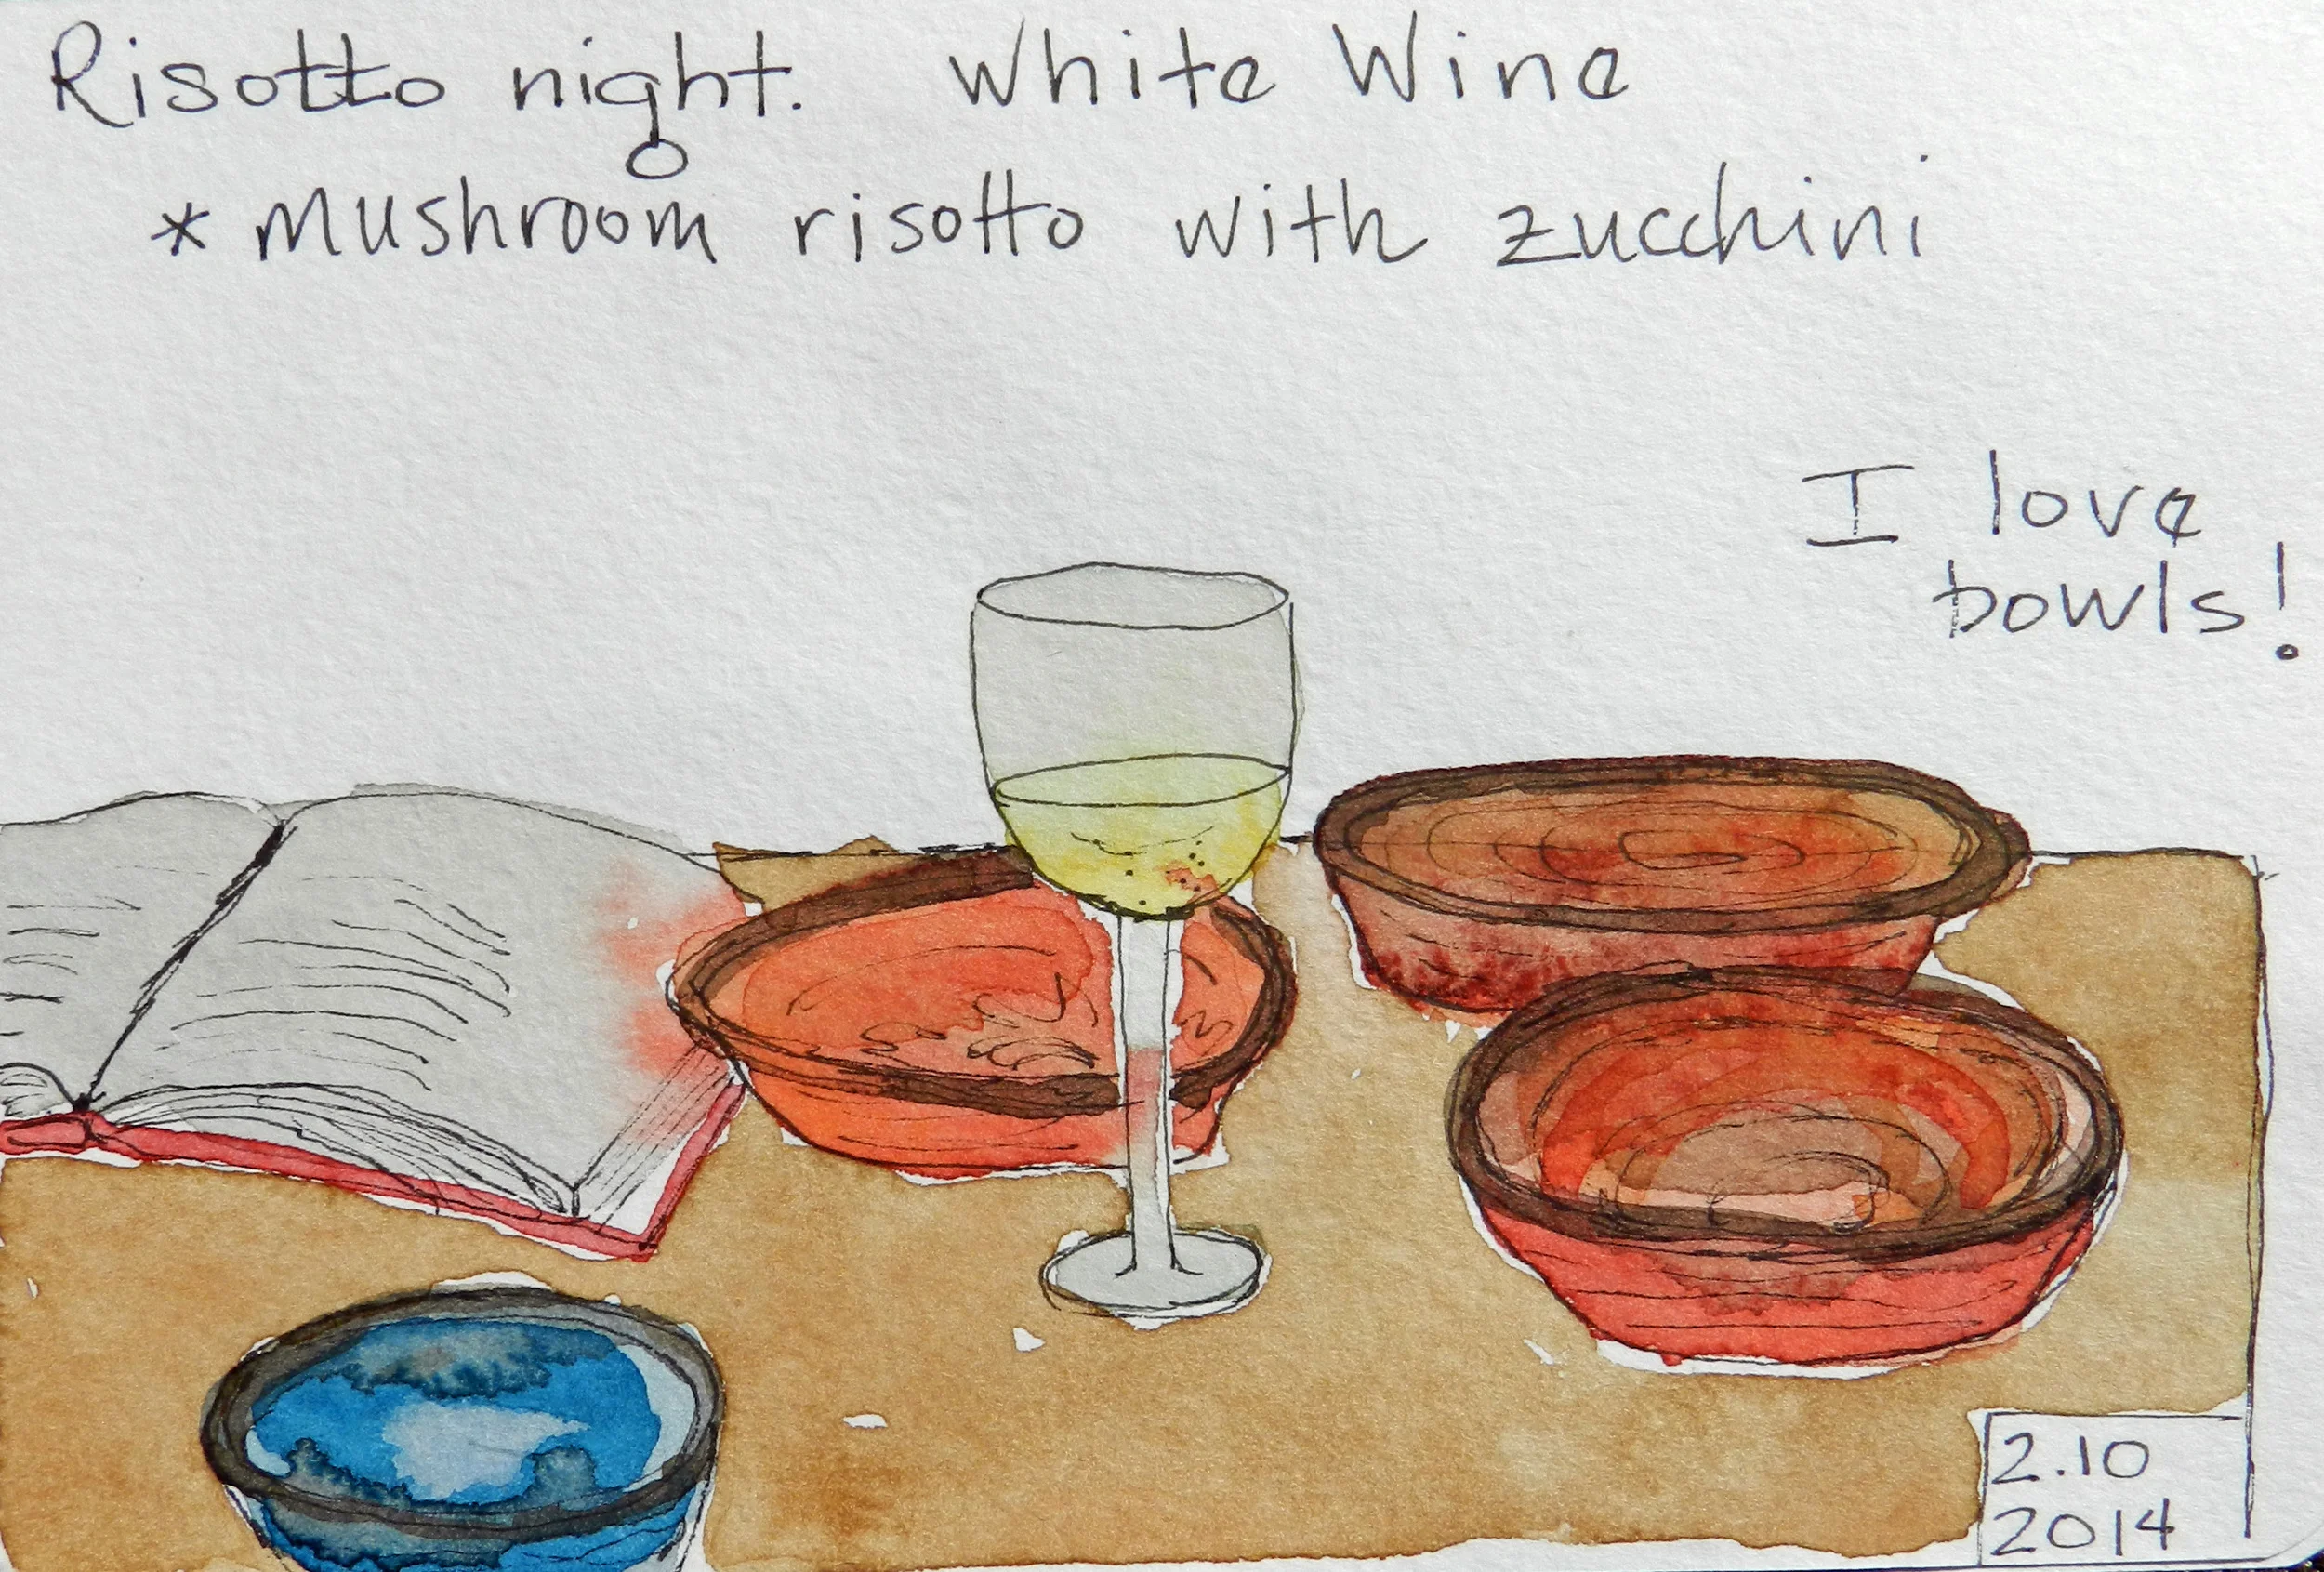 Risotto night. White Wine
* Mushroom risotto with zucchini
I love
bowls!
2.10
2014